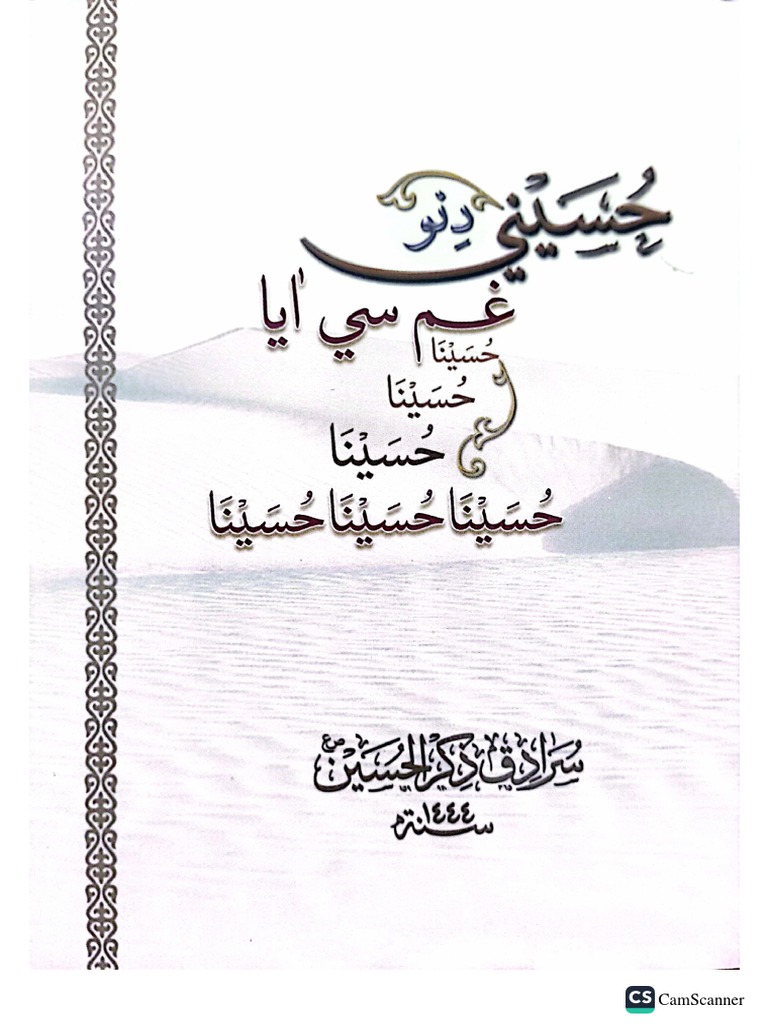 حُسَيْنِي دِنْو
غم سي اٰيا
حُسَيْنَا
حُسَيْنَا
حُسَيْنَا
حُسَيْنَا حُسَيْنَا حُسَيْنَا
سُرَادِق ذِكْرُ الحُسَيْن ع
سنة ١٤٤٤
CS CamScanner